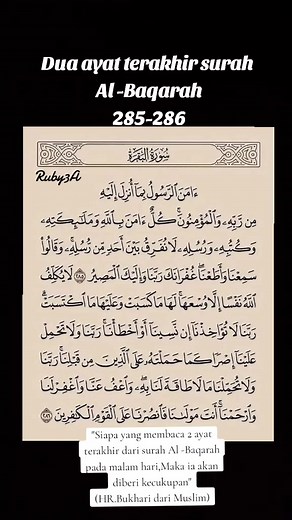 Dua ayat terakhir surah
Al -Baqarah
285-286
سُورَةُ البَقَرَةِ
Ruby3A
ءَامَنَ ٱلرَّسُولُ بِمَآ أُنزِلَ إِلَيْهِ
مِن رَّبِّهِۦ وَٱلْمُؤْمِنُونَۚ كُلٌّ ءَامَنَ بِٱللَّهِ وَمَلَٰٓئِكَتِهِۦ
وَكُتُبِهِۦ وَرُسُلِهِۦ لَا نُفَرِّقُ بَيْنَ أَحَدٍ مِّن رُّسُلِهِۦۚ وَقَالُوا۟
سَمِعْنَا وَأَطَعْنَاۖ غُفْرَانَكَ رَبَّنَا وَإِلَيْكَ ٱلْمَصِيرُ ٢٨٥ لَا يُكَلِّفُ
ٱللَّهُ نَفْسًا إِلَّا وُسْعَهَاۚ لَهَا مَا كَسَبَتْ وَعَلَيْهَا مَا ٱكْتَسَبَتْۗ
رَبَّنَا لَا تُؤَاخِذْنَآ إِن نَّسِينَآ أَوْ أَخْطَأْنَاۚ رَبَّنَا وَلَا تَحْمِلْ
عَلَيْنَآ إِصْرًا كَمَا حَمَلْتَهُۥ عَلَى ٱلَّذِينَ مِن قَبْلِنَاۚ رَبَّنَا
وَلَا تُحَمِّلْنَا مَا لَا طَاقَةَ لَنَا بِهِۦۖ وَٱعْفُ عَنَّا وَٱغْفِرْ لَنَا
وَٱرْحَمْنَآۚ أَنتَ مَوْلَىٰنَا فَٱنصُرْنَا عَلَى ٱلْقَوْمِ ٱلْكَٰفِرِينَ ٢٨٦
"Siapa yang membaca 2 ayat
terakhir dari surah Al -Baqarah
pada malam hari,Maka ia akan
diberi kecukupan"
(HR.Bukhari dari Muslim)